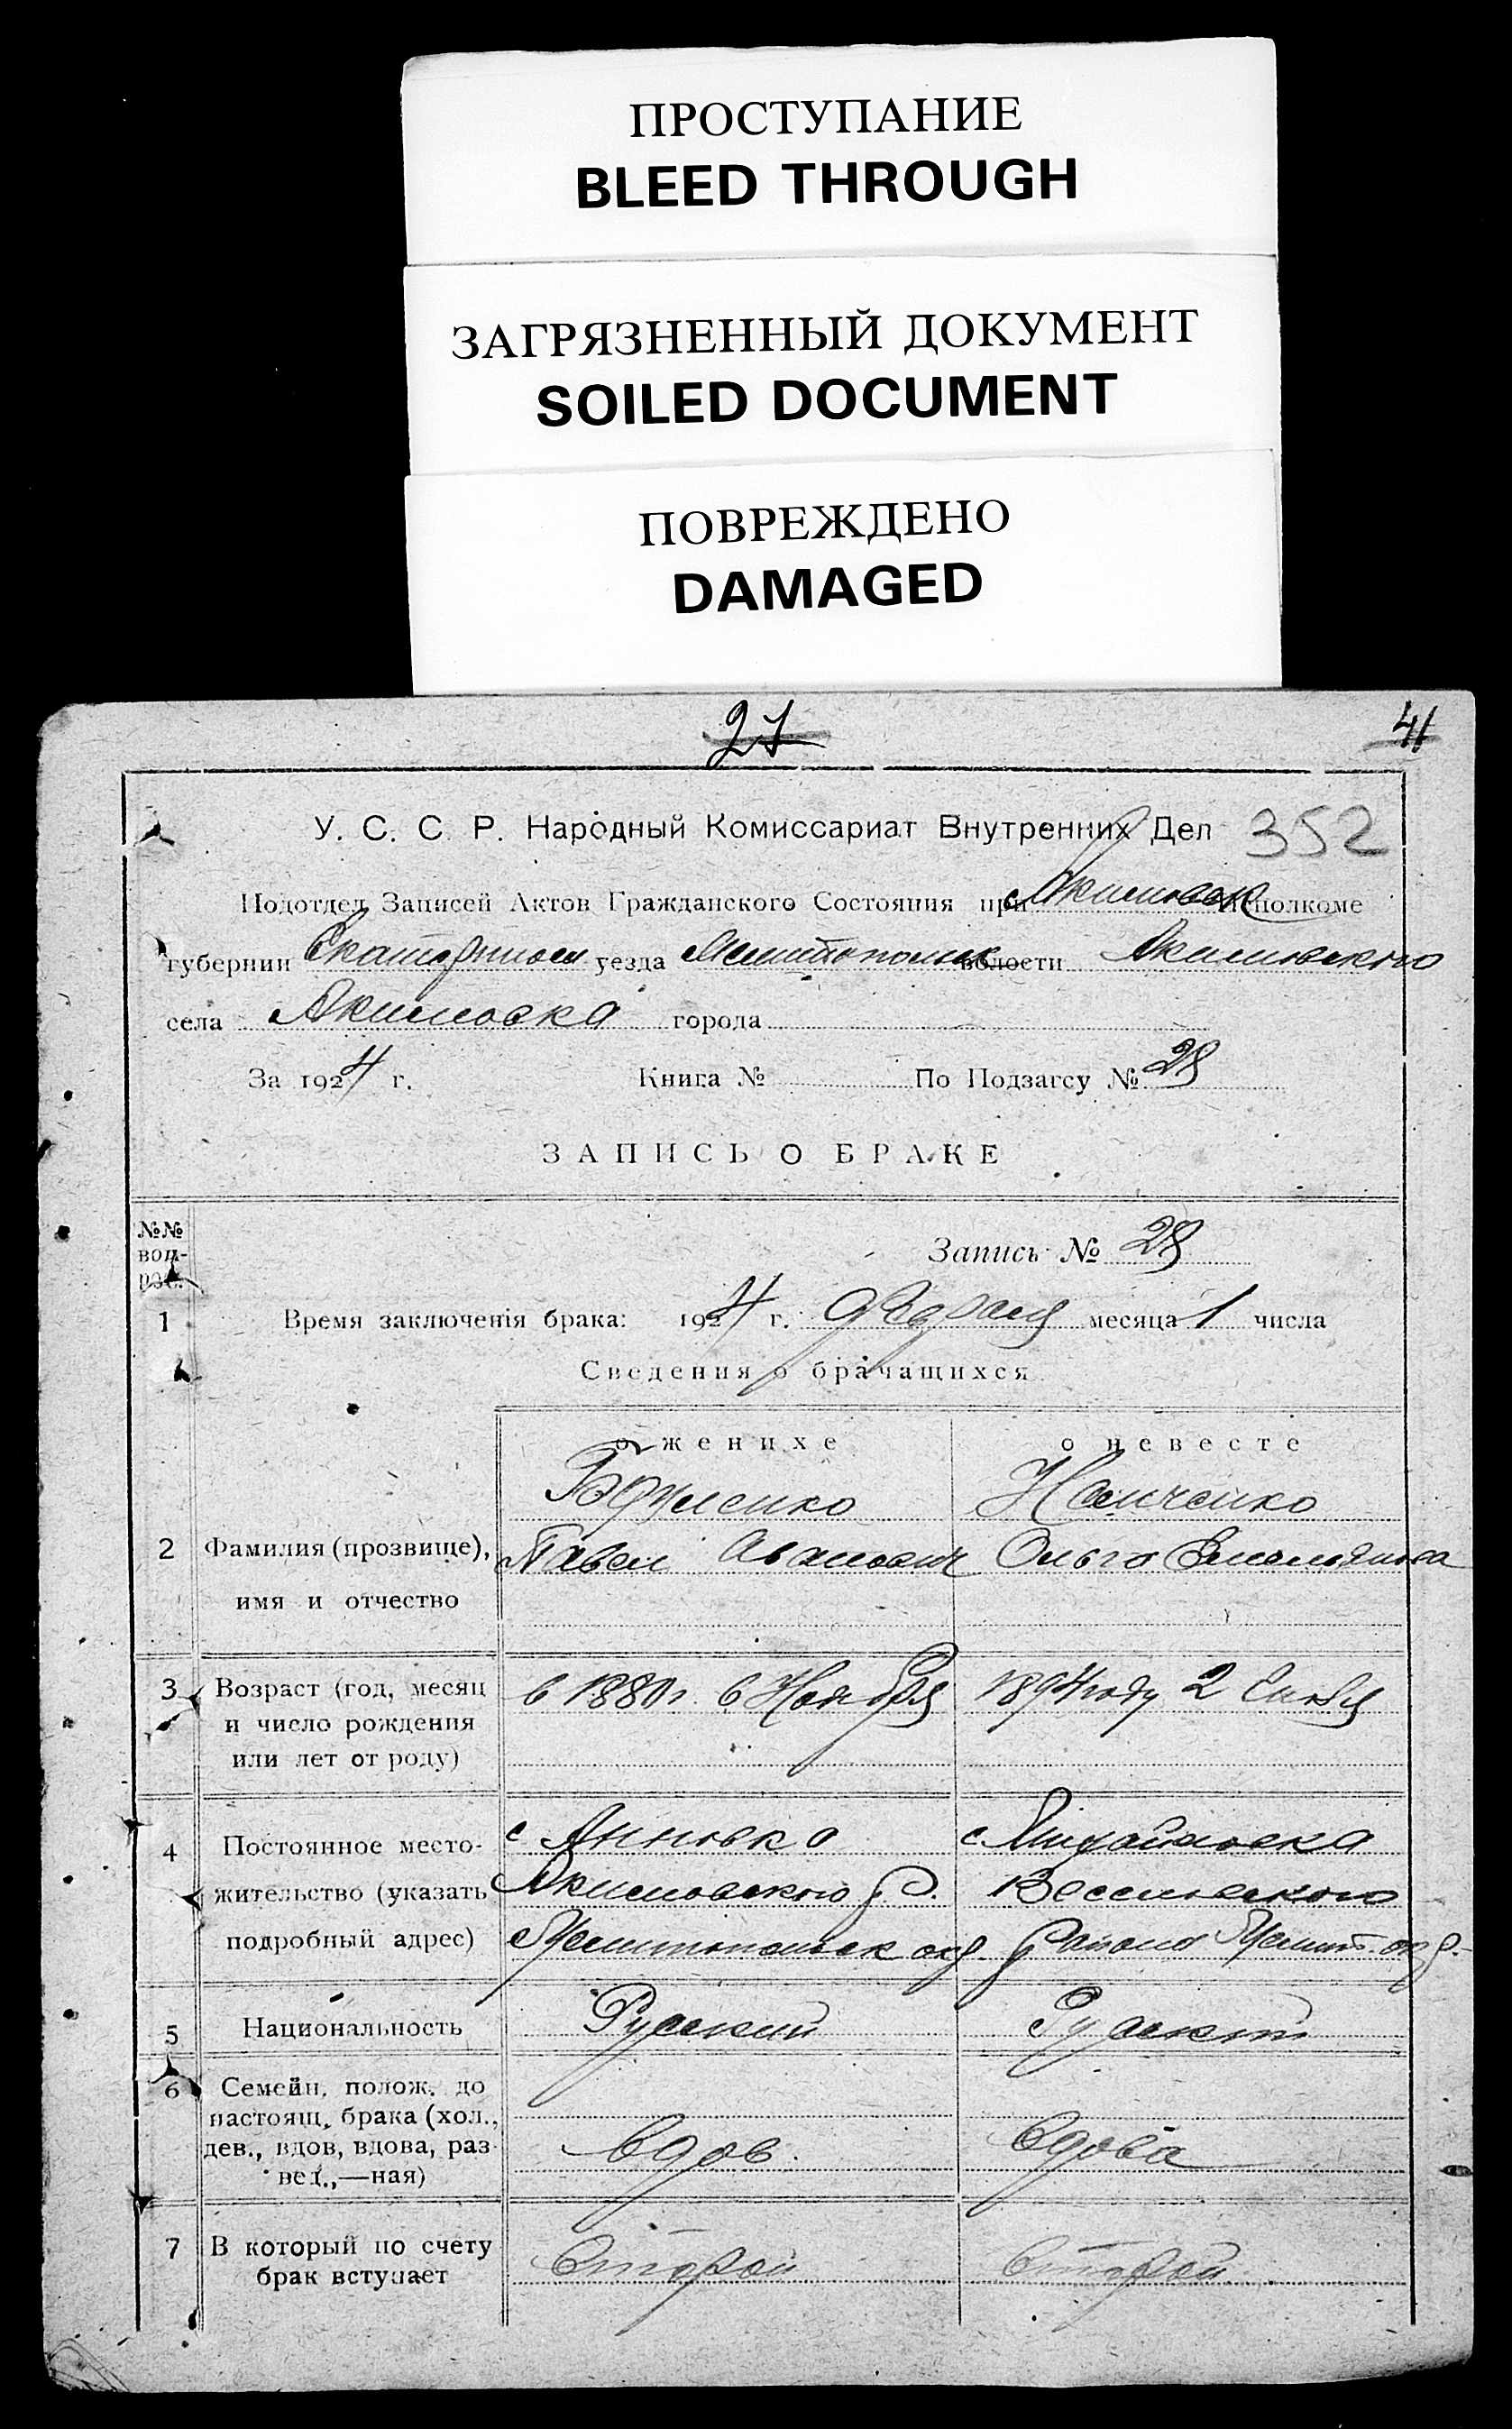 ПРОСТУПАНИЕ
BLEED THROUGH
ЗАГРЯЗНЕННЫЙ ДОКУМЕНТ
SOILED DOCUMENT
ПОВРЕЖДЕНО
DAMAGED
27
41
У. С. С. Р. Народный Комиссариат Внутренних Дел 352
Подотдел Записей Актов Гражданского Состояния при Акимовск Исполкоме
губернии уезда Мелитопольск волости Акимовского
села Акимовка города
За 1924 г. Книга № По Подзагсу № 28
ЗАПИСЬ О БРАКЕ
№№ вопрос.
Запись № 28
1 Время заключенія брака: 1924 г. февраля месяца 1 числа
Сведения о брачащихся
о женихе о невесте
2 Фамилия (прозвище),
имя и отчество
Павел Ольга
3 Возраст (год, месяц
и число рождения
или лет от роду)
в 1880 г. 6 Ноября 1894 году 2
4 Постоянное место-
жительство (указать
подробный адрес)
с Анновка с. Михайловка
Акимовского р. Веселовского
Мелитопольск окр. Района Мелит. окр.
5 Национальность Русский
6 Семейн. полож. до
настоящ. брака (хол.,
дев., вдов, вдова, раз-
вед.,—ная)
вдов. вдова
7 В который по счету
брак вступает
второй второй